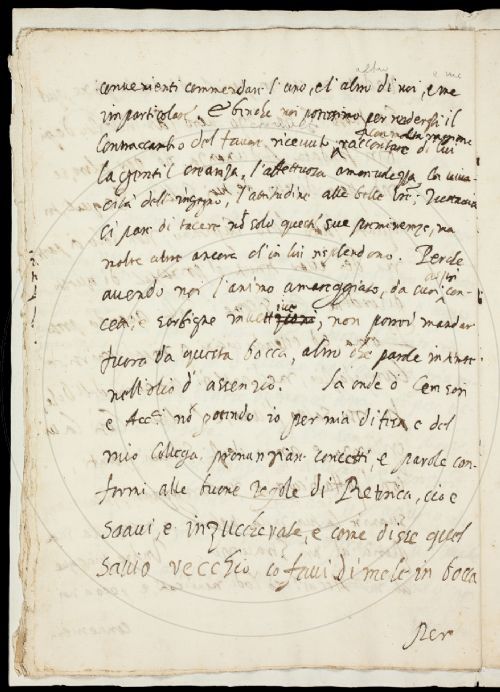 convenienti commendar l'uno, e l'altro di noi, e me
in particolare. E benche noi potessimo per renderli il
contraccambio del favor ricevuto raccontare di lui
la gentil creanza, l'affettuosa amorevolezza, la
cità dell'ingegno, l'attitudine alle belle lre:
ci pare di tacere nō solo queste sue preminenze, ma
molte altre ancora ch'in lui risplendono. Perche
avendo noi l'animo amareggiato, da cosi con-
cetti, e invettive, non potrei mandar
fuora da questa bocca, altro che parole intinte
nell'olio d'assenzio. La onde ò Censori
e Acc: nō potendo io per mia difesa e del
mio Collega pronunziar concetti, e parole con-
formi alle buone regole di Retorica, cio e
soavi, e inzuccherate, e come disse quel
savio vecchio, co favi di mele in bocca
Per